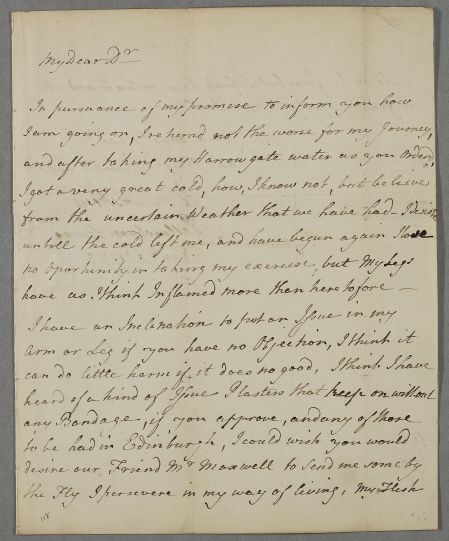 My Dear Dr
In pursuance of my promise to inform you how
I am going on, I rechond not the worse for my Journey,
and after taking my Harrowgate water as you Orderd,
I got a very great cold, how, I know not, but believe
from the uncertain Weather that we have had I desist
untill the cold left me, and have begun again I lose
no Oportunity in taking my exercise, but My Legs
have as I think Inflamed more than heretofore —
I have an Inclination to put an Issue in my
Arm or Leg if you have no Objection, I think it
can do little harm if it does no good, I think I have
heard of a kind of Issue Plasters that keep on without
any Bandage, if you approve, and any of those
to be had in Edinburgh, I could wish you would
desire our Friend Mr Maxwell to send me some by
the Fly I persevere in my way of living, My Flesh